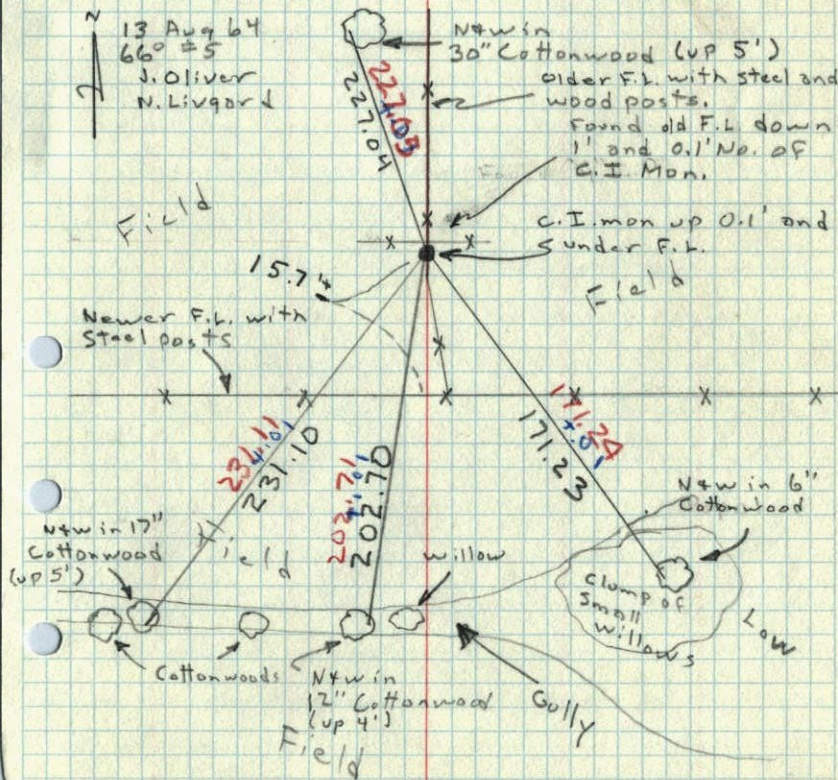 N
13 Aug 64
66° #5
J. Oliver
N. Livgard
N&W in
30" Cottonwood (up 5')
older F.L. with Steel and
wood posts.
Found old F.L. down
1' and 0.1' No. of
C.I. Mon.
C.I. mon up 0.1' and
under F.L.
227.05
+.01
227.04
Field
Field
15.74
Newer F.L. with
Steel posts
231.11
+.01
231.10
202.71
+.01
202.70
171.24
+.01
171.23
N&W in 6"
Cottonwood
N&W in 17"
Cottonwood
(up 5')
Field
Willow
Clump of
Small
Willows
Low
Cottonwoods
N&W in
12" Cottonwood
(up 4')
Gully
Field